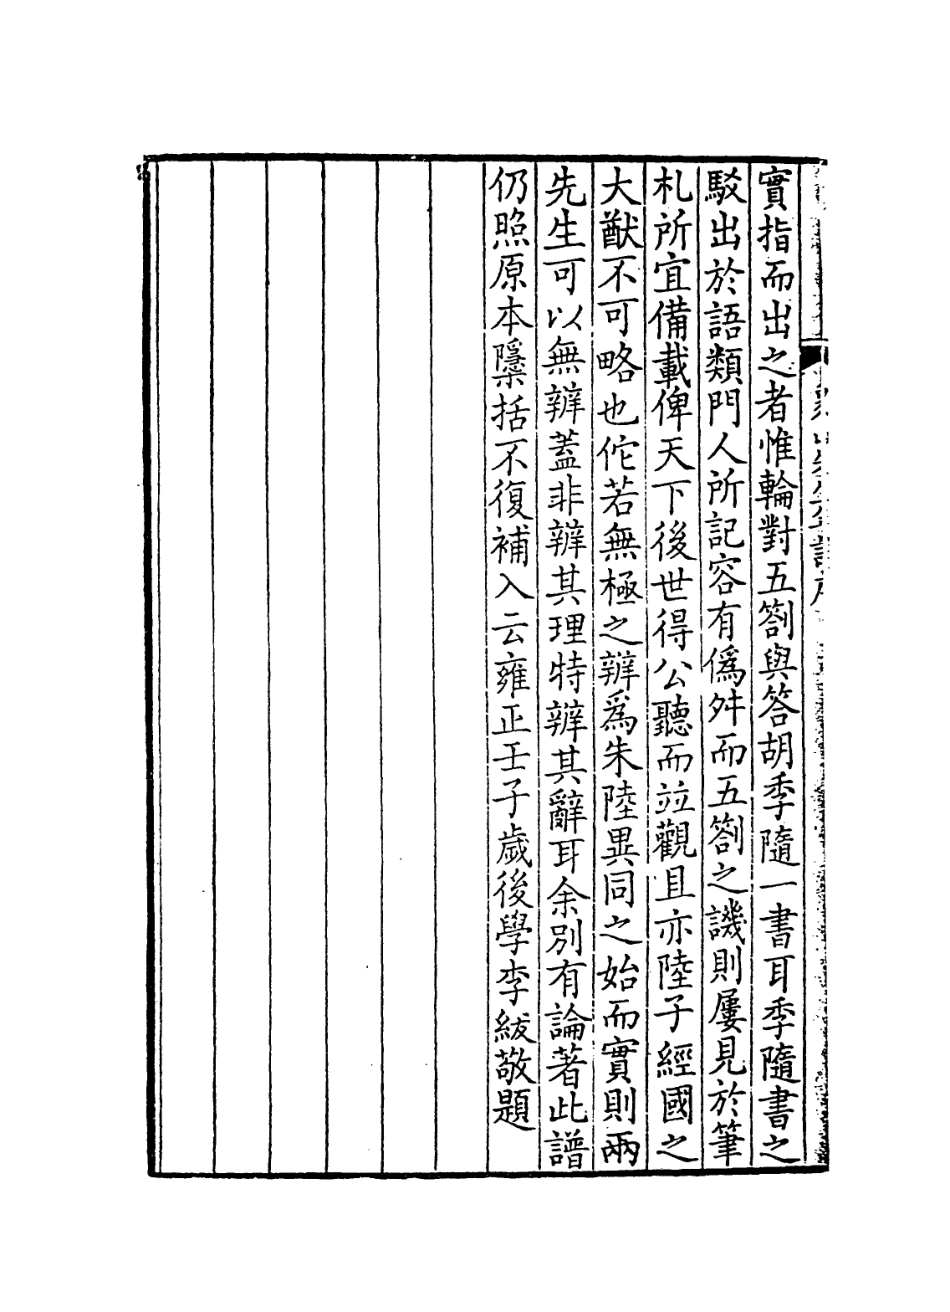 實指而出之者惟輪對五劄與答胡季隨一書耳季隨書之
駮出於語類門人所記容有僞舛而五劄之譏則屢見於筆
札所宜備載俾天下後世得公聽而並觀且亦陸子經國之
大猷不可略也佗若無極之辨爲朱陸異同之始而實則兩
先生可以無辨蓋非辨其理特辨其辭耳余別有論著此譜
仍照原本隱括不復補入云雍正壬子歲後學李紱敬題